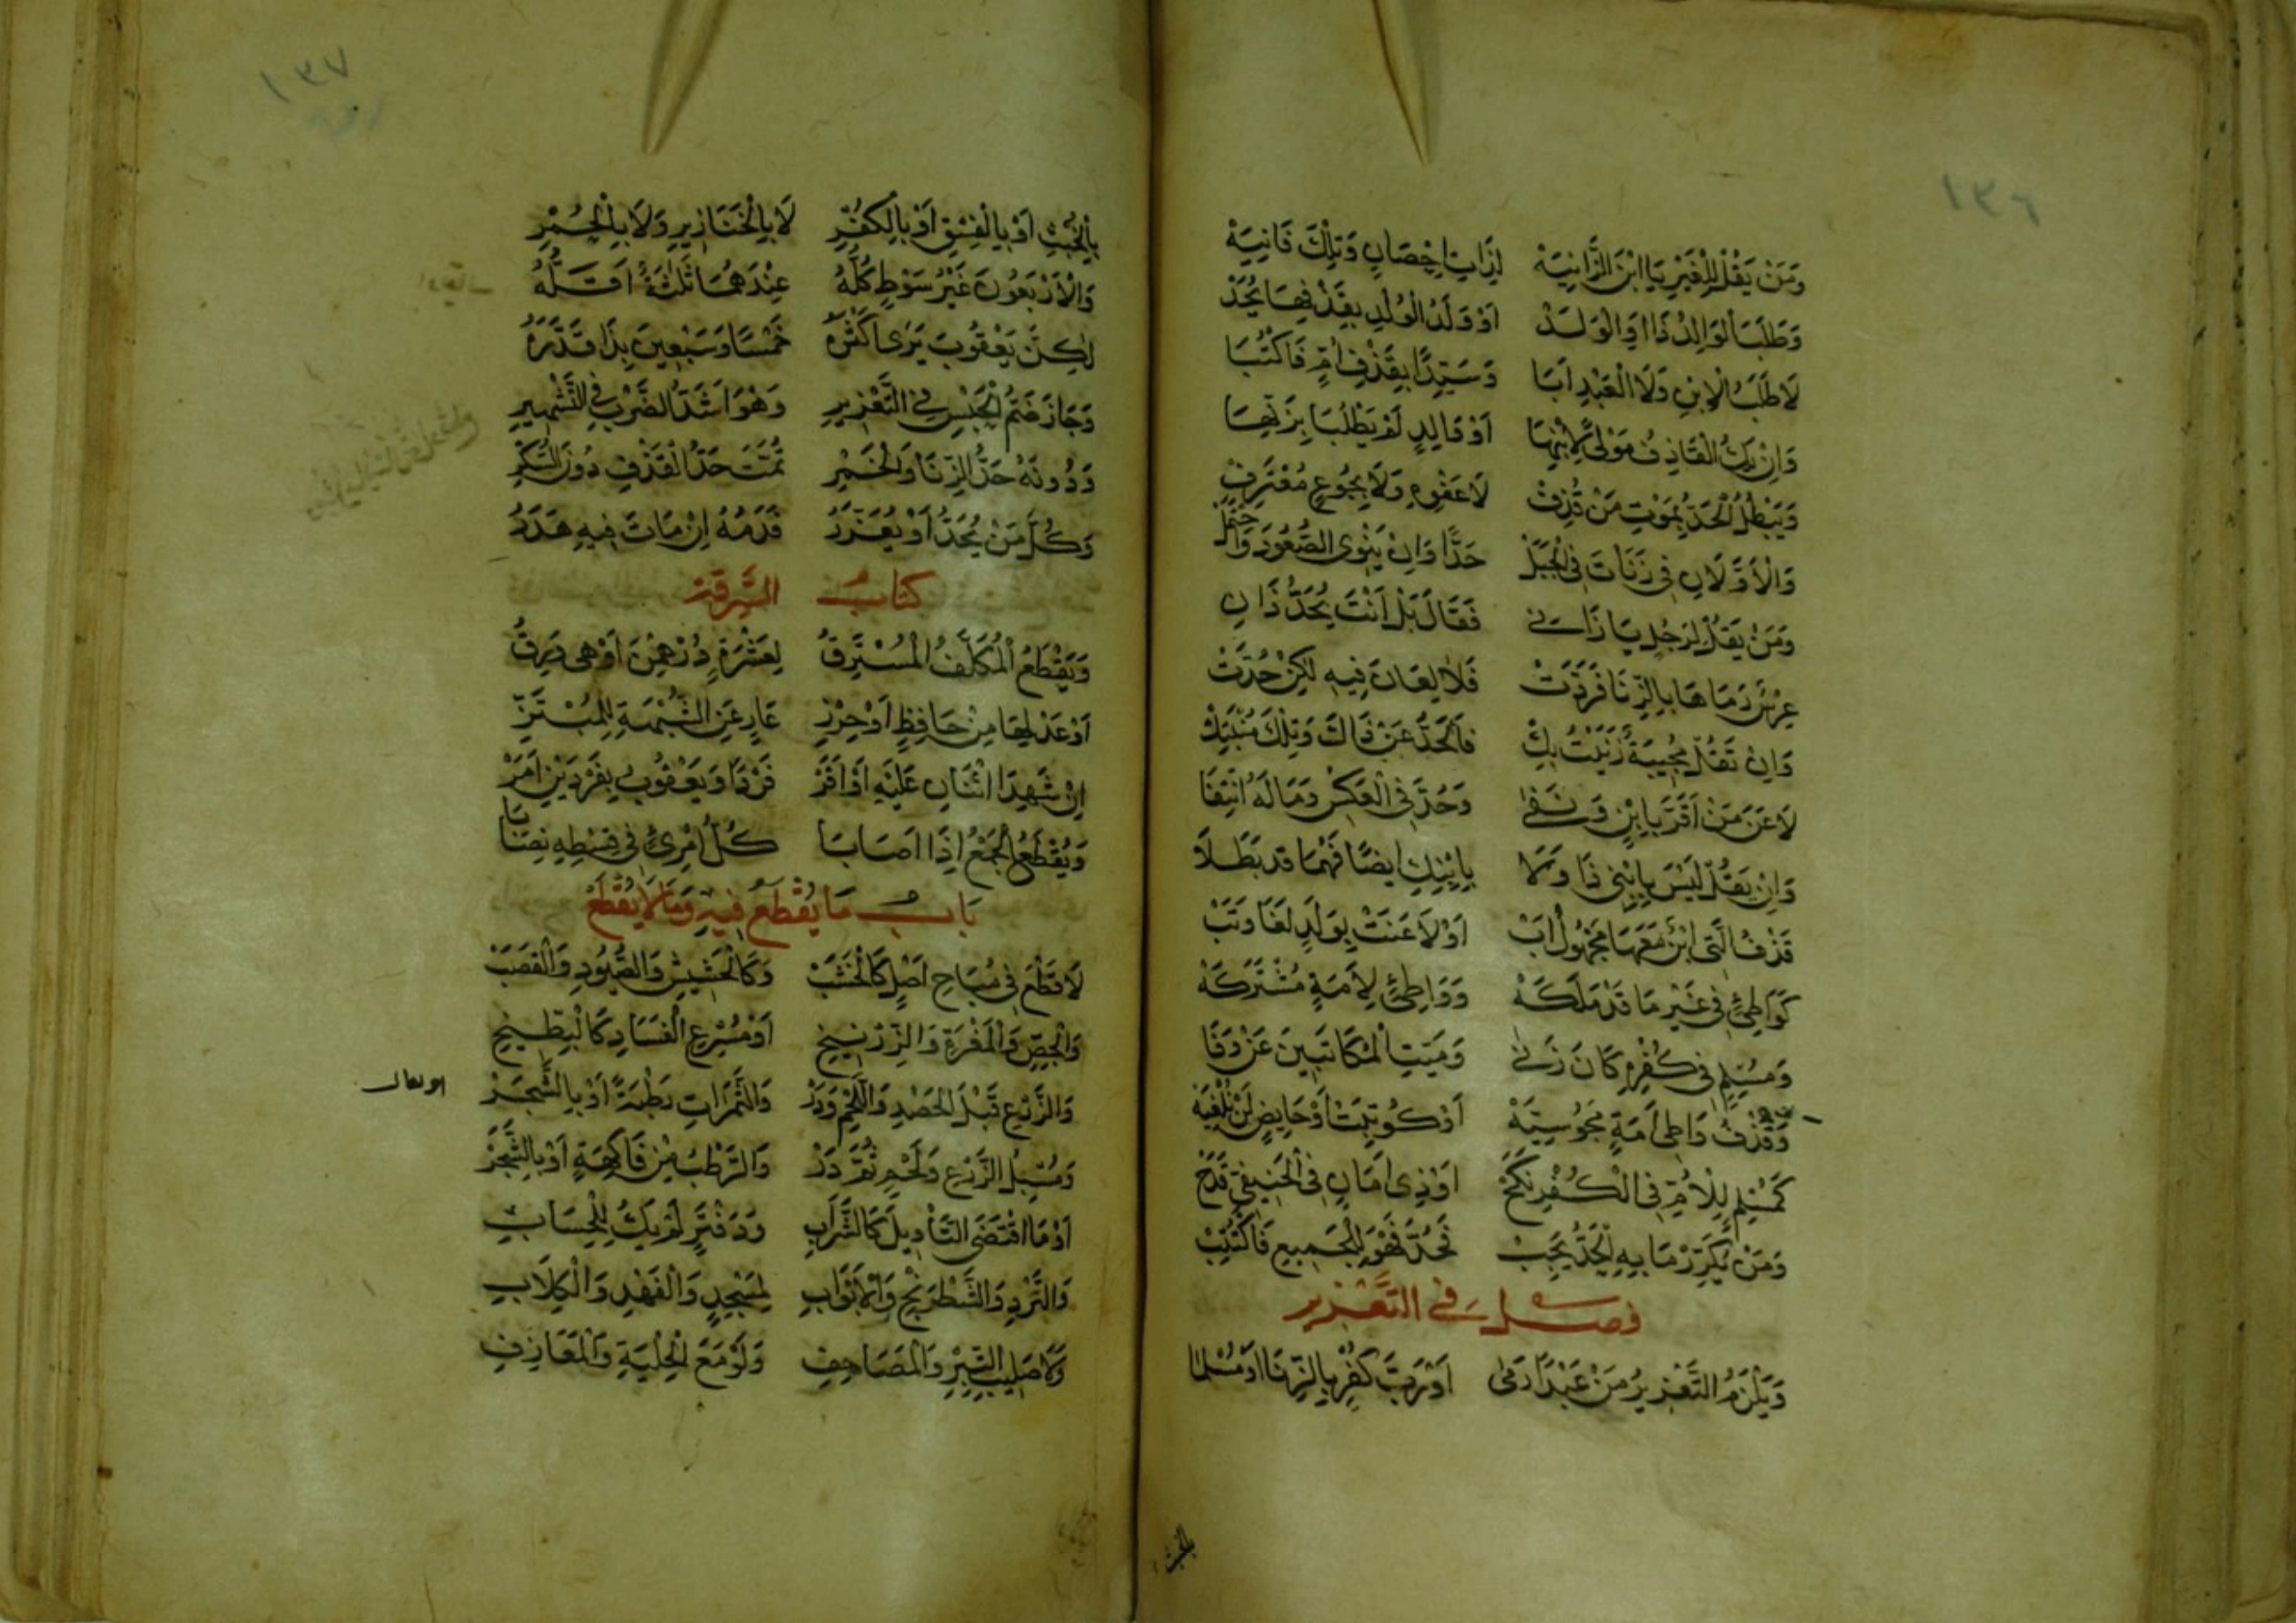 ١٣٦
وَمَنْ يَقُلْ لِلْغَيْرِ يَا ابْنَ الزَّانِيَهْ لِذَاتِ اِحْصَانٍ وَتِلْكَ فَانِيَهْ
وَطَلَبَ الْوَالِدُ ذَا اَوِ الْوَلَدْ اَوْ وَلَدُ الْوُلْدِ بِقَذْفِهَا يُحَدْ
لَا طَلَبُ الْاِبْنِ وَلَا الْعَبْدِ اَبَا وَسَيِّدًا بِقَذْفِ اُمٍّ فَاكْتُبَا
وَاِنْ يَكُ الْقَاذِفُ مَوْلًى لِابْنِهَا اَوْ وَالِدٍ لَمْ يَطْلُبَا بِزَنْيِهَا
وَيَبْطُلُ الْحَدُّ بِمَوْتِ مَنْ قُذِفْ لَا عَفْوِهِ وَلَا رُجُوعِ مُعْتَرِفْ
وَالْاَوَّلَانِ فِي زَنَاتَ فِي الْجَبَلْ حَدَّا وَاِنْ يَنْوِي الصُّعُودَ
وَمَنْ يَقُلْ لِرَجُلٍ يَا زَانِي فَقَالَ بَلْ اَنْتَ يُحَدُّ ذَانِ
عِرْسٌ رَمَاهَا بِالزِّنَا فَرَدَّتْ فَلَا لِعَانَ فِيهِ لٰكِنْ حُدَّتْ
وَاِنْ تَقُلْ مُجِيبَةً زَنَيْتُ بِكْ فَالْحَدُّ عَنْ ذَاكَ وَتِلْكَ
لَاعَنَ مَنْ اَقَرَّ بِابْنٍ وَنَفَى وَحُدَّ فِي الْعَكْسِ وَمَا لَهُ انْتِفَا
وَاِنْ يَقُلْ لَيْسَ بِابْنِي ذَا وَلَا بِابْنِكِ اَيْضًا فَهُمَا قَدْ بَطَلَا
قَذْفُ الَّتِي ابْنٌ مَعَهَا مَجْهُولُ اَبْ اَوْ لَاعَنَتْ بِوَلَدٍ لَغَا وَتَبْ
كَوَاطِئٍ فِي غَيْرِ مَا قَدْ مَلَكَهْ وَوَاطِئٍ لِاَمَةٍ مُشْتَرَكَهْ
وَمُسْلِمٍ فِي كُفْرِهِ كَانَ زَنَى وَمَيِّتِ الْمُكَاتَبِينَ عَنْ وَفَا
وَقَذْفُ وَاطِي اَمَةٍ مَجُوسِيَّهْ اَوْ كُوتِبَتْ اَوْ حَايِضٍ لَنْ نُلْغِيَهْ
كَمُسْلِمٍ لِلْاُمِّ فِي الْكُفْرِ نَكَحْ اَوْ ذِي اَمَانٍ فِي الْحَنِيفِيِّ قَدَحْ
وَمَنْ يُكَرِّرْ مَا بِهِ الْحَدُّ يَجِبْ فَحُدَّ فَهْوَ لِلْجَمِيعِ فَاكْتُتِبْ
فصل في التعزير
وَيَلْزَمُ التَّعْزِيرُ مَنْ عَبْدًا رَمَى اَوْ رَبَّ كُفْرٍ بِالزِّنَا اَوْ مُسْلِمَا
بالخبث
١٣٧
بِالْخُبْثِ اَوْ بِالْفِسْقِ اَوْ بِالْكُفْرِ لَا بِالْخَنَازِيرِ وَلَا بِالْحُمْرِ
وَالْاَرْبَعُونَ غَيْرَ سَوْطٍ كُلُّهُ عِنْدَهُمَا ثَلٰثَةٌ اَقَلُّهُ
لٰكِنَّ يَعْقُوبَ يَرٰى اَكْثَرَهُ خَمْسًا وَسَبْعِينَ بِذَا قَدَّرَهُ
وَجَازَ ضَمُّ الْحَبْسِ فِي التَّعْزِيرِ وَهْوَ اَشَدُّ الضَّرْبِ فِي التَّشْهِيرِ
وَدُونَهُ حَدُّ الزِّنَا وَالْخَمْرِ ثُمَّتَ حَدُّ الْقَذْفِ دُونَ السُّكْرِ
وَكُلُّ مَنْ يُحَدُّ اَوْ يُعَزَّرُ فَدَمُهُ اِنْ مَاتَ فِيهِ هَدَرُ
كتاب السرقة
وَيُقْطَعُ الْمُكَلَّفُ الْمُسْتَرِقُ لِعَشْرَةٍ دُرْهِمْنَ اَوْ هِي وَرِقُ
اَوْ عَدْلِهَا مِنْ حَافِظٍ اَوْ حِرْزِ عَارٍ عَنِ الشُّبْهَةِ لِلْمُبْتَزِّ
اِنْ شَهِدَ اثْنَانِ عَلَيْهِ اَوْ اَقَرْ فَرْدًا وَيَعْقُوبُ بِفَرْدَيْنِ اَمَرْ
وَيُقْطَعُ الْجَمْعُ اِذَا اَصَابَا كُلُّ امْرِئٍ فِي قِسْطِهِ نِصَابَا
باب ما يقطع فيه وما لا يقطع
لَا قَطْعَ فِي مُبَاحِ اَصْلٍ كَالْخَشَبْ وَكَالْحَشِيشِ وَالصُّيُودِ وَالْقَصَبْ
وَالْجِصِّ وَالْمَغْرَةِ وَالزِّرْنِيخِ اَوْ مُسْرِعِ الْفَسَادِ كَالْبِطِّيخِ
وَالزَّرْعِ قَبْلَ الْحَصْدِ وَاللَّحْمِ وَدَرْ وَالثَّمَرَاتِ رَطْبَةً اَوْ بِالشَّجَرْ
وَسُنْبُلُ الزَّرْعِ وَلَحْمٍ ثُمَّ دَرْ وَالرَّطْبُ مِنْ فَاكِهَةٍ اَوْ بِالشَّجَرْ
اَوْ مَا اقْتَضَى التَّأْوِيلَ كَالشَّرَابِ وَدَفْتَرٍ لَمْ يَكُ لِلْحِسَابِ
وَالنَّرْدِ وَالشَّطْرَنْجِ وَالْاَبْوَابِ لِمَسْجِدٍ وَالْفَهْدِ وَالْكِلَابِ
وَلَا صَلِيبِ التِّبْرِ وَالْمَصَاحِفِ وَلَوْ مَعَ الْحِلْيَةِ وَالْمَعَازِفِ